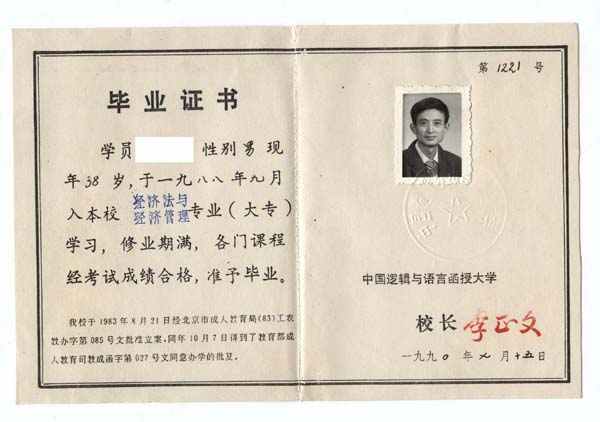 毕业证书
学员 性别男现
年38岁，于一九八八年九月
入本校经济法与经济管理专业（大专）
学习，修业期满，各门课程
经考试成绩合格，准予毕业。
我校于1983年8月21日经北京市成人教育局(83)工农
教办字第085号文批准立案，同年10月7日得到了教育部成
人教育司教成函字第027号文同意办学的批复。
第1221号
中国逻辑与语言函授大学
校长 李正文
一九九〇年九月十五日